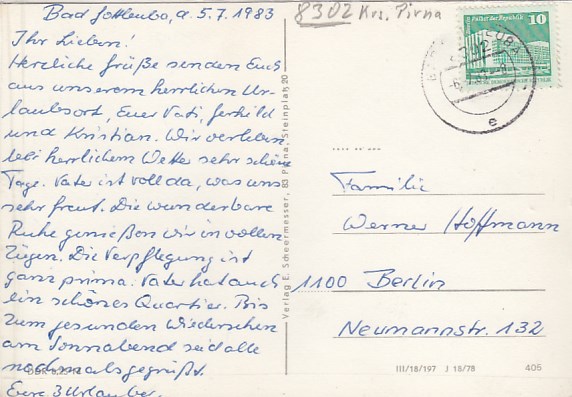 Bad Gottleuba, d. 5.7.1983
Ihr Lieben!
Herzliche Grüße senden Euch
aus unserem herrlichen Ur-
laubsort, Euer Vati, Gerhild
und Kristian. Wir verleben
bei herrlichem Wetter sehr schöne
Tage. Vater ist voll da, was uns
sehr freut. Die wunderbare
Ruhe genießen wir in vollen
Zügen. Die Verpflegung ist
ganz prima. Vater hat auch
ein schönes Quartier. Bis
zum gesunden Wiedersehen
am Sonnabend seid alle
nochmals gegrüßt.
Eure 3 Urlauber.
8302 Krs. Pirna
10
Verlag E. Scheermesser, 83 Pirna, Steinplatz 20
Familie
Werner Hoffmann
1100 Berlin
Neumannstr. 132
III/18/197 J 18/78 405